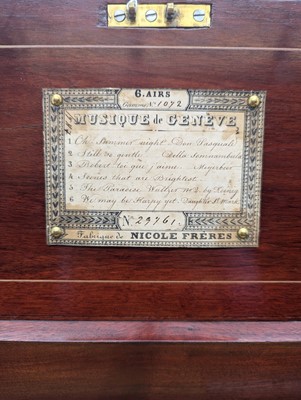 6. AIRS
Gamme No. 1072
MUSIQUE de GENÈVE
1 Oh Summer night Don Pasquale
2 Still so gently Della Sonnambula
3 Robert toi que j'aime Meyerbeer
4 Scenes that are Brightest
5 The Paradise Waltzes No. 2 by
6 We may be Happy yet
No. 29761.
Fabrique de NICOLE FRÈRES